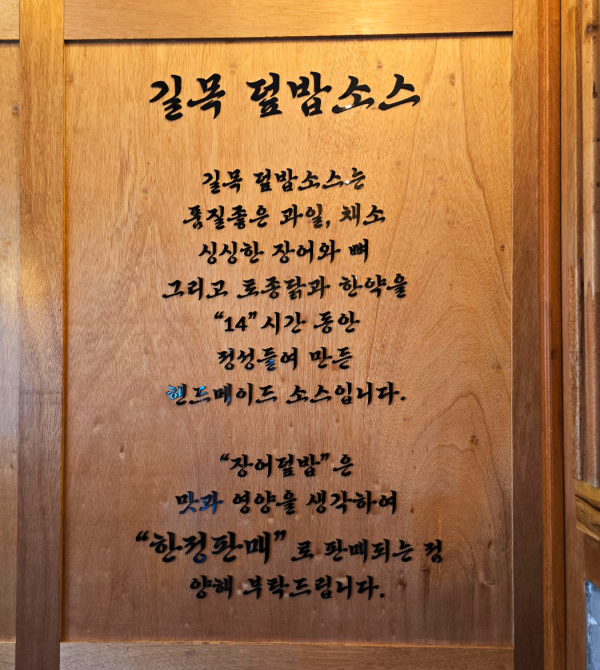 길목 덮밥소스
길목 덮밥소스는
품질좋은 과일, 채소
싱싱한 장어와 뼈
그리고 토종닭과 한약을
“14” 시간 동안
정성들여 만든
핸드메이드 소스입니다.
“장어덮밥”은
맛과 영양을 생각하여
“한정판매”로 판매되는 점
양해 부탁드립니다.